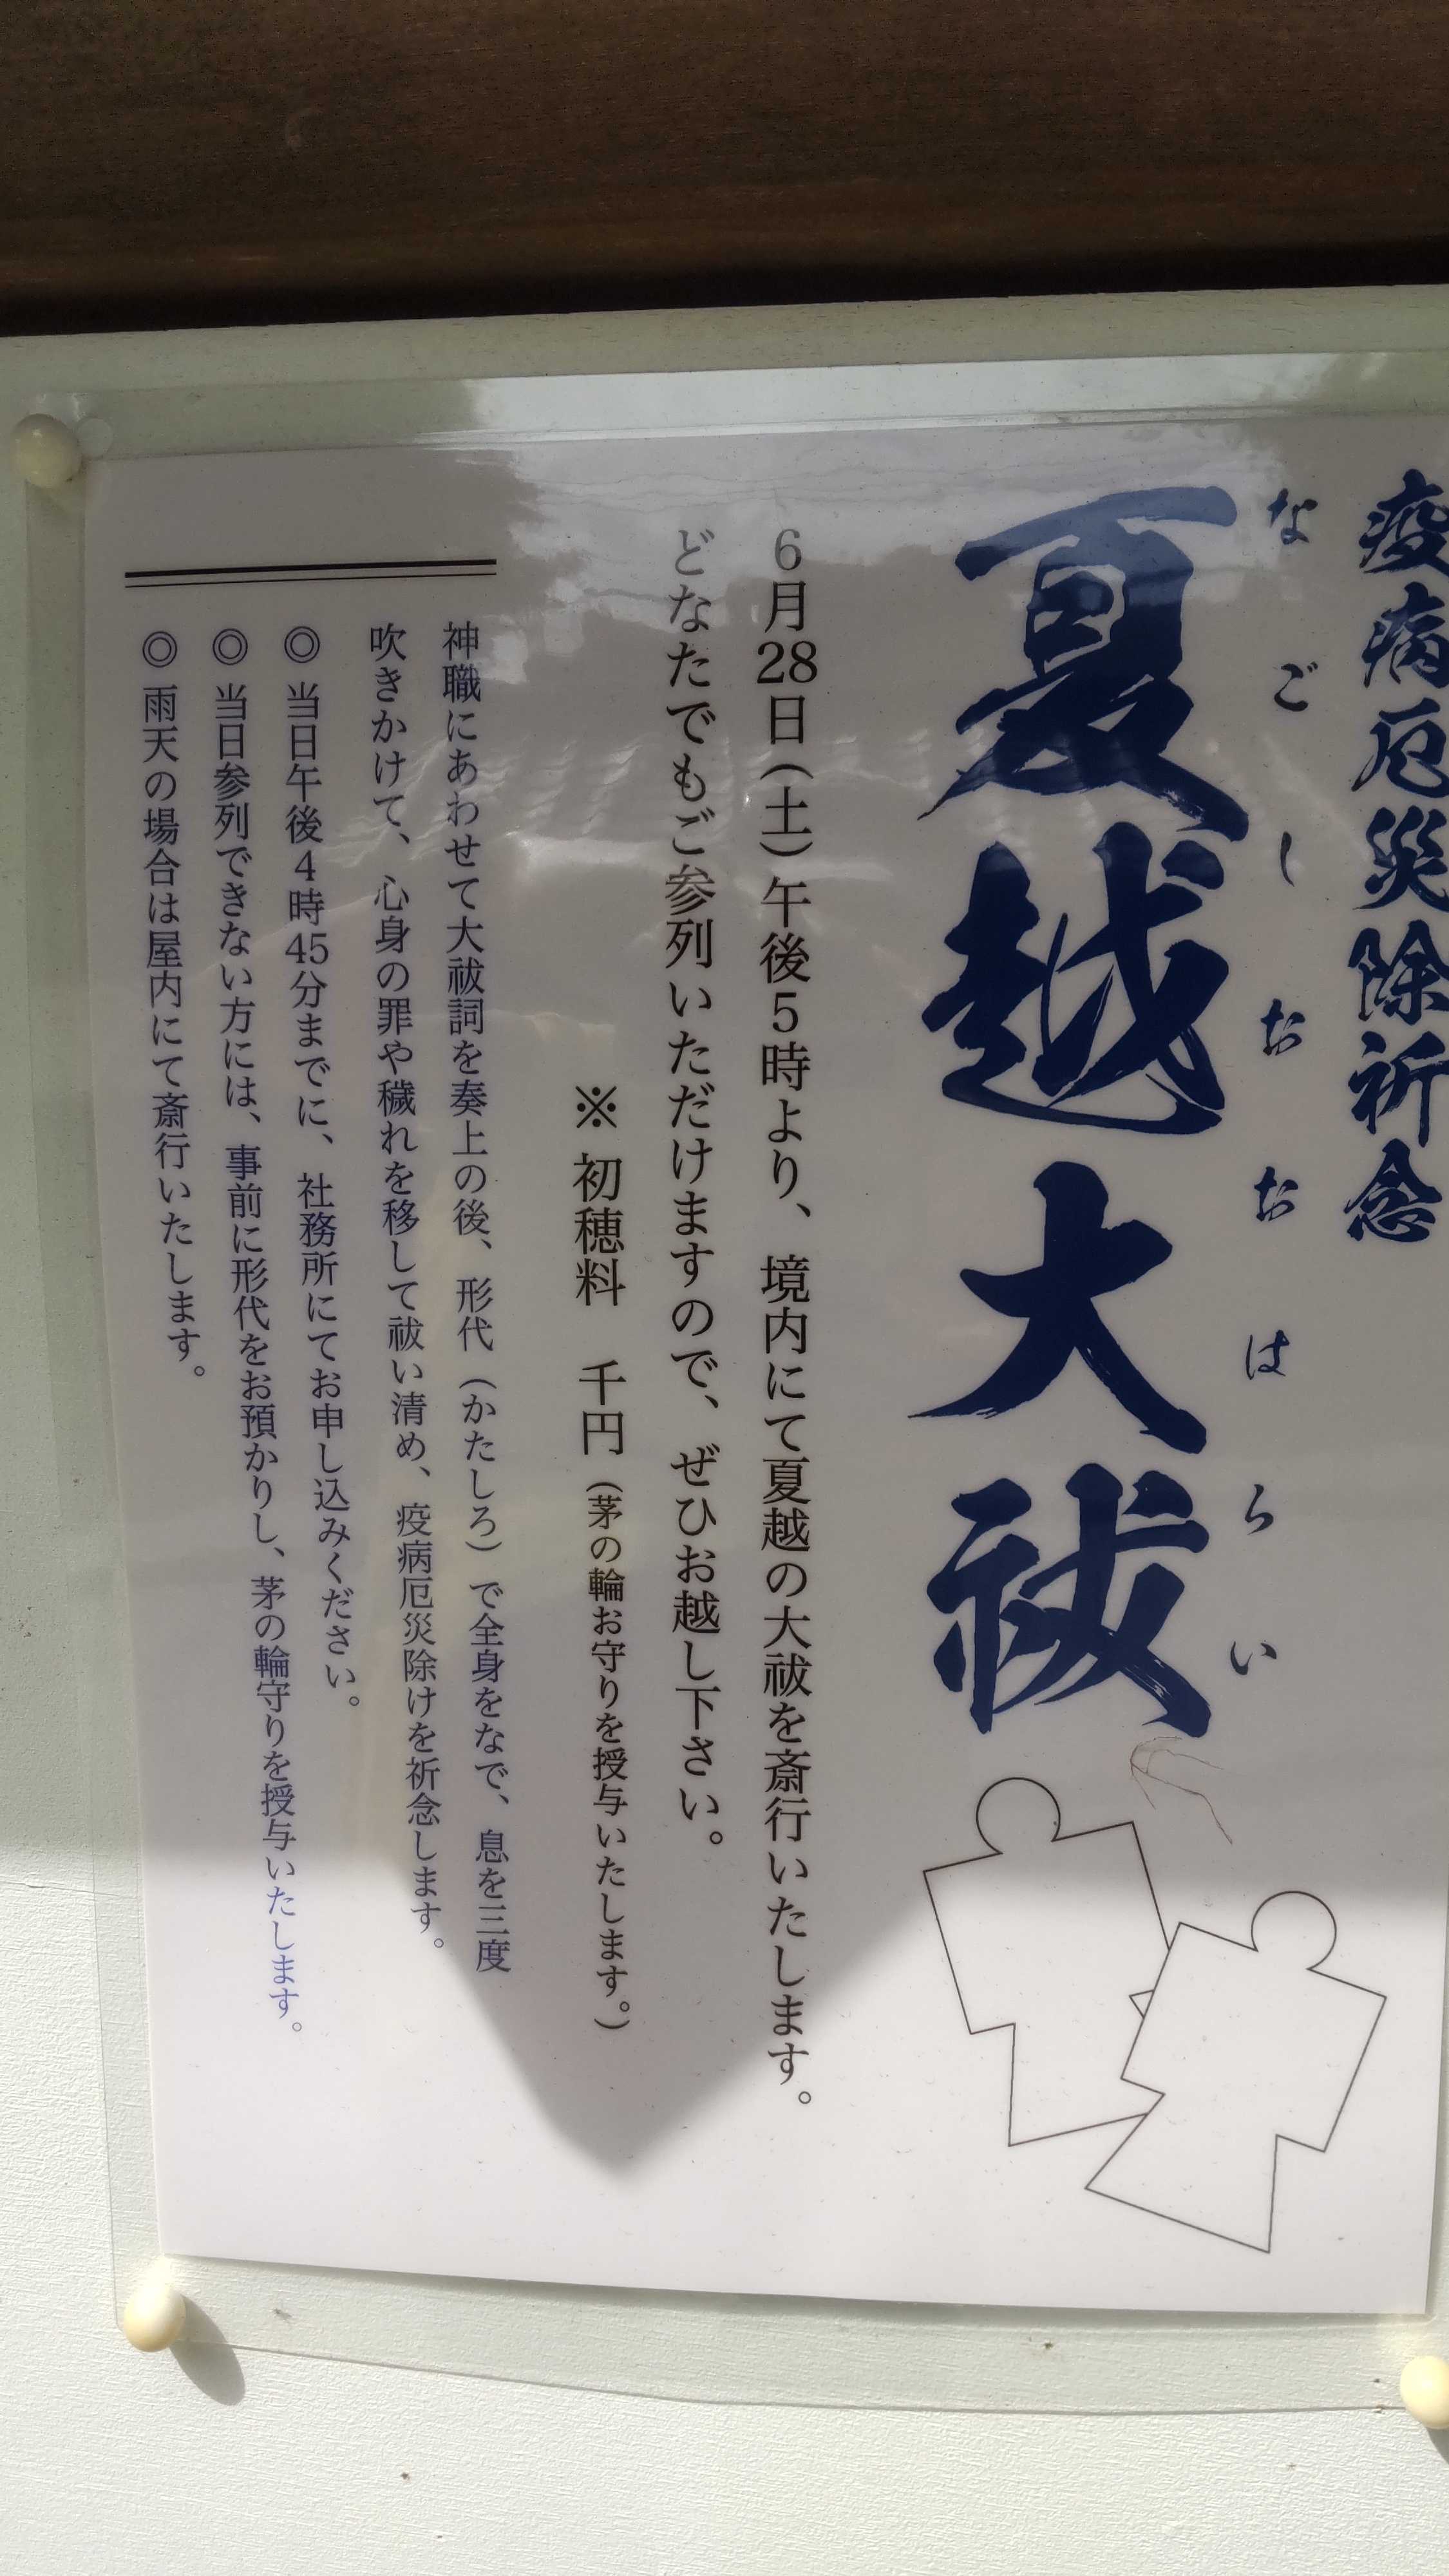 疫病厄災除祈念
なごしおおはらい
夏越大祓
6月28日（土）午後5時より、境内にて夏越の大祓を斎行いたします。
どなたでもご参列いただけますので、ぜひお越し下さい。
※ 初穂料　千円（茅の輪お守りを授与いたします。）
神職にあわせて大祓詞を奏上の後、形代（かたしろ）で全身をなで、息を三度
吹きかけて、心身の罪や穢れを移して祓い清め、疫病厄災除けを祈念します。
◎ 当日午後4時45分までに、社務所にてお申し込みください。
◎ 当日参列できない方には、事前に形代をお預かりし、茅の輪守りを授与いたします。
◎ 雨天の場合は屋内にて斎行いたします。